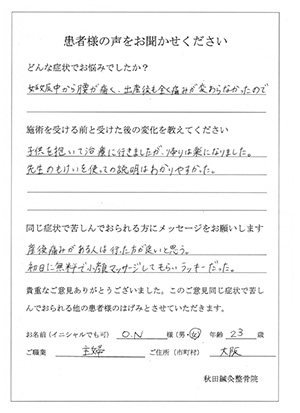 患者様の声をお聞かせください
どんな症状でお悩みでしたか？
妊娠中から腰が痛く、出産後も全く痛みが変わらなかったので
施術を受ける前と受けた後の変化を教えてください
子供を抱いて治療に行きましたが、帰りは楽になりました。
先生のもけいを使っての説明はわかりやすかった。
同じ症状で苦しんでおられる方にメッセージをお願いします
産後痛みがある人は行った方が良いと思う。
初日に無料で小顔マッサージしてもらいラッキーだった。
貴重なご意見ありがとうございました。このご意見同じ症状で苦し
んでおられる他の患者様のはげみとさせていただきます。
お名前(イニシャルでも可) O.N 様(男・女) 年齢 23 歳
ご職業 主婦 ご住所(市町村) 大阪
秋田鍼灸整骨院